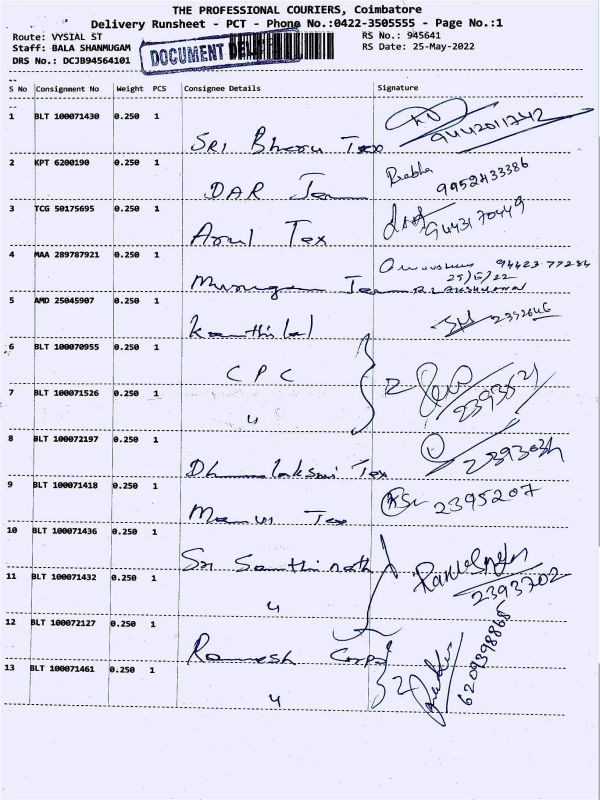 THE PROFESSIONAL COURIERS, Coimbatore
Delivery Runsheet - PCT - Phone No.:0422-3505555 - Page No.:1
Route: VYSIAL ST
RS No.: 945641
Staff: BALA SHANMUGAM
RS Date: 25-May-2022
DRS No.: DCJB94564101
DOCUMENT
S No Consignment No Weight PCS Consignee Details Signature
1 BLT 100071430 0.250 1 SRI Tex 9442011742
2 KPT 6200190 0.250 1 DAR Prabha 9952433386
3 TCG 50175695 0.250 1 Arul Tex 9443170449
4 MAA 289787921 0.250 1 Murugan 94423 77284
25/5/22
5 AMD 25045907 0.250 1 Kanthilal 2392646
6 BLT 100070955 0.250 1 CPC
7 BLT 100071526 0.250 1 " 2
8 BLT 100072197 0.250 1 Tex 2393034
9 BLT 100071418 0.250 1 Tex 2395207
10 BLT 100071436 0.250 1 Sri Santhinath
11 BLT 100071432 0.250 1 " 2393702
12 BLT 100072127 0.250 1 Ramesh Corpn
13 BLT 100071461 0.250 1 " 2 6209398868